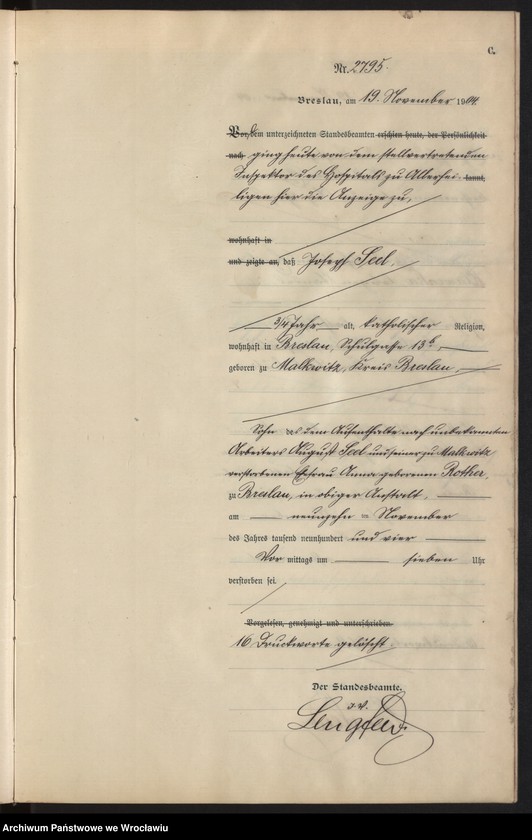 C.
Nr. 2795.
Breslau, am 19. November 1904.
Vor dem unterzeichneten Standesbeamten erschien heute, der Persönlichkeit
nach ging heute von dem stellvertretenden
Inspektor des Hospitals zu Allerhei- kannt,
ligen hier die Anzeige zu,
wohnhaft in
und zeigte an, daß Joseph Seel.
3/4 Jahr alt, katholischer Religion,
wohnhaft in Breslau, Schulgasse 13b,
geboren zu Malkwitz, Kreis Breslau,
Sohn des dem Aufenthalte nach unbekannten
Arbeiters August Seel und seiner zu Malkwitz
verstorbenen Ehefrau Anna geborenen Rother,
zu Breslau, in obiger Anstalt,
am neunzehnten November
des Jahres tausend neunhundert und vier
Vor mittags um sieben Uhr
verstorben sei.
Vorgelesen, genehmigt und unterschrieben
16 Druckworte gelöscht.
Der Standesbeamte.
I. V.
Archiwum Państwowe we Wrocławiu